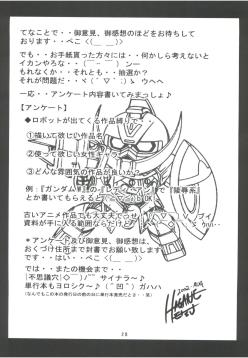 てなことで・・御意見、御感想のほどをお待ちして
おります・・ぺこ＜(＿ ＿)＞
でも・・お手紙貰った方々には・・何かしら考えないと
イカンやろな・・(￣-￣)ンー
もれなくか・・それとも・・抽選か？
それが問題だ・・ヽ(´▽｀;)ゝ ウヘヘ
一応・・アンケート内容書いてみましょ♪
【アンケート】
◆ロボットが出てくる作品縛りで
①描いて欲しい作品名
②使って欲しい女性キャラ
③どんな雰囲気の作品が良いか？
例：『ガンダムW』の で『陵辱系』
とか書いてもらえると OK
古いアニメ作品でも大丈夫でっせ ブイ
資料が手に入る範囲でなら
＊アンケート及び御意見、御感想は、
おくづけ住所まで封書でお願い致します
です・・はい・・ぺこ＜(＿ ＿)＞
では・・またの機会まで・・
|不思議穴|◇￣)ノ~~ サイナラ～♪
単行本もヨロシク～♪ (￣凹￣) ガハハ
2002
HAGANE
28